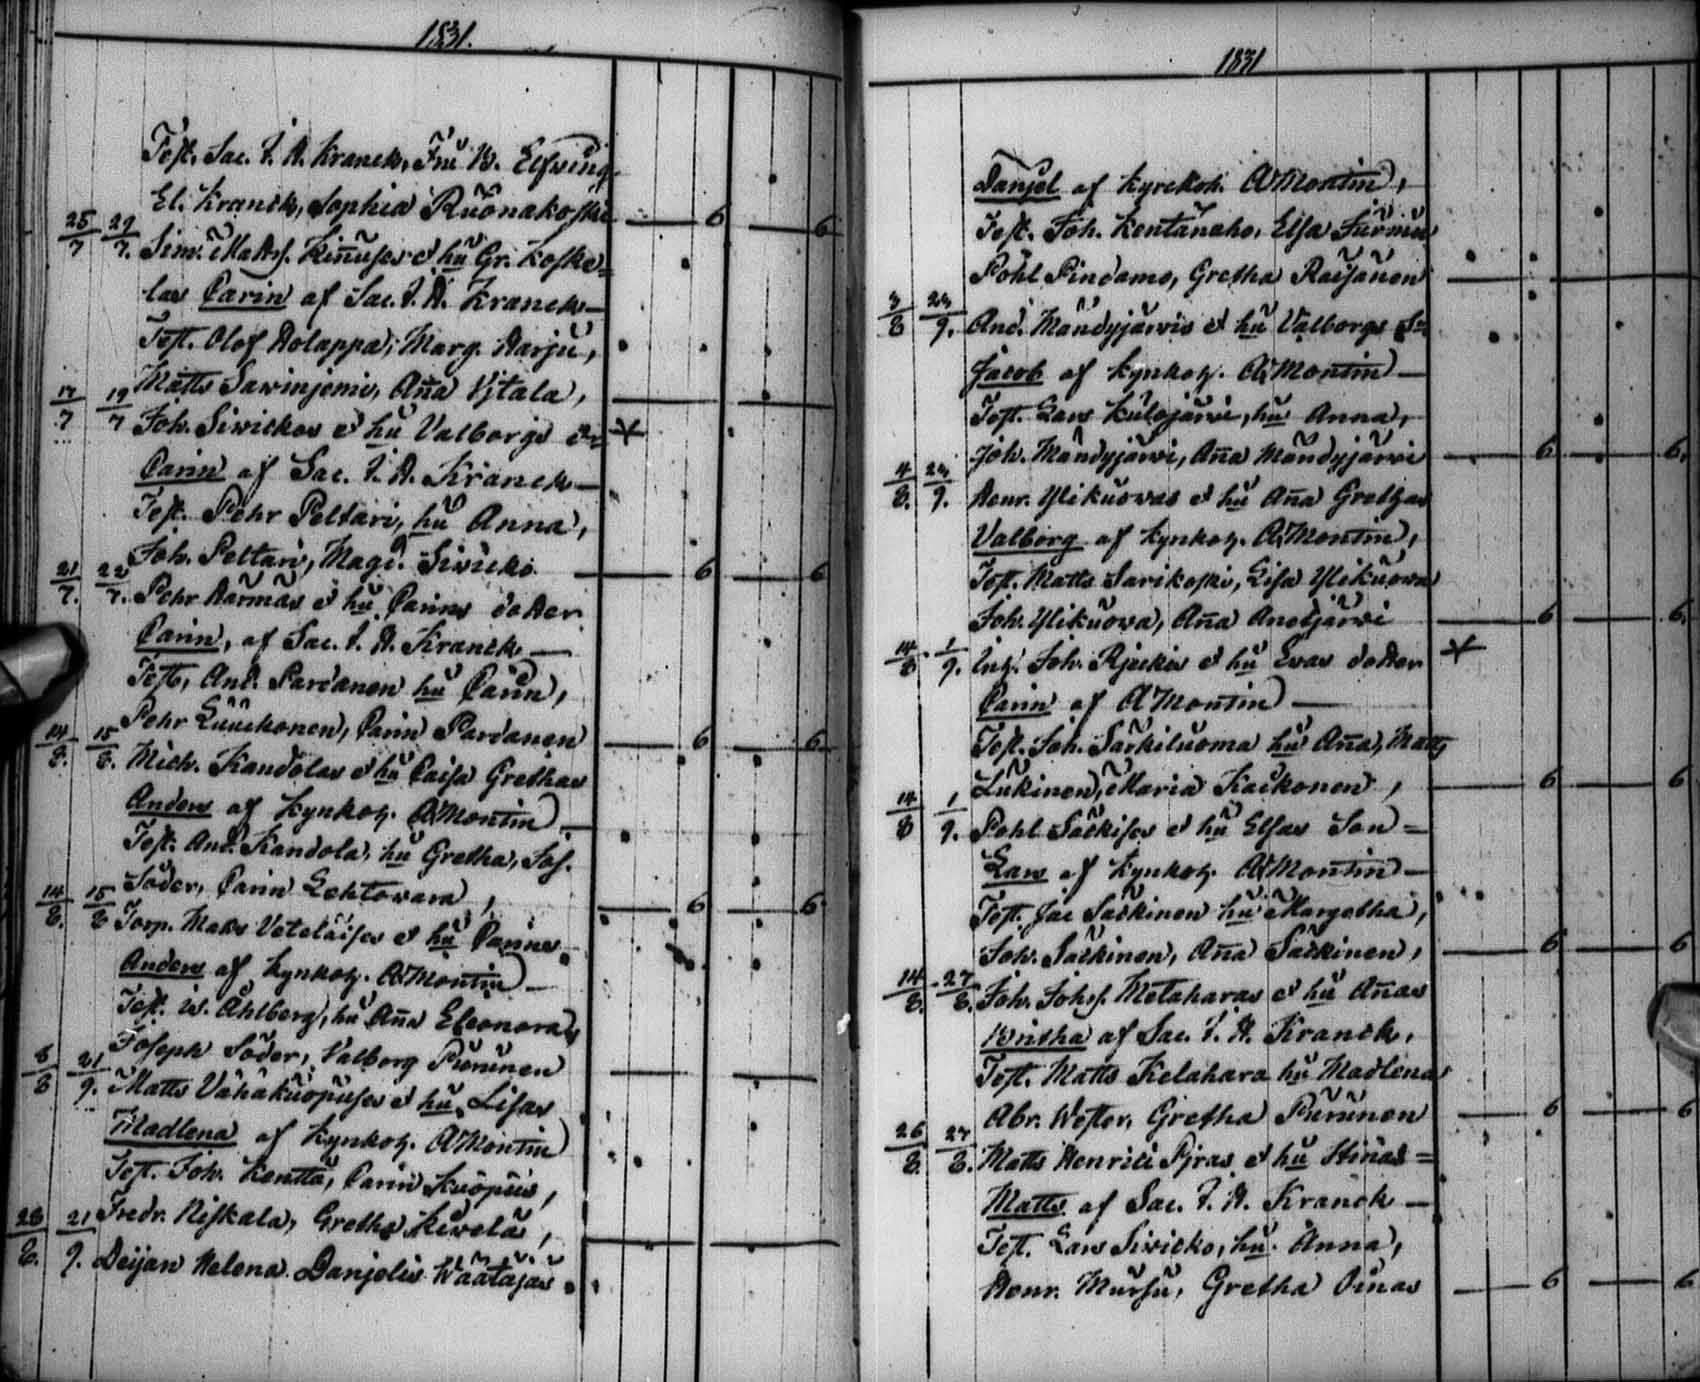 1831.
Test. Sac. J. H. Kranck, Fru B. Elfving
El. Kranck, Sophia Ruonakoski 6 6
25/7 29/7. Sim. Matts. Kinnuses et hu Gr. Koske=
las Carin af Sac. J. H. Kranck—
Test. Olof Holappa, Marg. Harju,
Matts Sawinjemi, Aña Ylitala,
17/7 19/7 Joh. Siwickos et hu Valborgs d=
Carin af Sac. J. H. Kranck—
Test. Pehr Peltari, hu Anna,
Joh. Peltari, Magd. Siwicko 6 6
21/7. 22/7. Pehr Harmas et hu Carins dotter
Carin, af Sac. J. H. Kranck—
Test, And. Pardanen hu Carin,
Pehr Luuckonen, Carin Pardanen 6 6
14/8. 15/8. Mich. Kandolas et hu Caisa Grethas
Anders af Kynkoh. A Montin—
Test. And. Kandola, hu Gretha, Jos.
Söder, Carin Lehtovara, 6 6
14/8. 15/8 Torp. Matts Veteläises et hu Carins
Anders af Kynkoh. A Montin—
Test. W. Åhlberg, hu Aña Eleonora,
Joseph Söder, Valborg Purunen
8/8 21/9. Matts Vähäkuopuses et hu Lisas
Madlena af Kynkoh. A Montin
Test. Joh. Kentta, Carin Kuopus,
Fredr. Niskala, Gretha Kiwelä,
28/8. 21/9. Deijan Helena Danjelis Wäätäjäs
1831
Danjel af Kyrckoh. A Montin,
Test. Joh. Kentänaho, Elsa Surmu
Pohl Pindamo, Gretha Raisanen
3/8 24/9. And. Mändyjärvis et hu Valborgs S=
Jacob af Kynkoh. A Montin—
Test. Lars Kulojärvi, hu Anna,
Joh. Mändyjärvi, Aña Mändyjärvi 6 6.
4/8. 24/9. Henr. Ylikuovas et hu Aña Grethas
Valborg af Kynkoh. A Montin,
Test. Matts Sarikoski, Lisa Ylikuova
Joh. Ylikuova, Aña Anetjärvi 6 6.
14/8. 1/9. Inh. Joh. Rjackis et hu Evas dotter
Carin af A Montin—
Test. Joh. Särkiluoma hu Aña, Matts
Lukinen, Maria Kaikonen, 6 6
14/8 1/9. Pohl Säckises et hu Elsas Son=
Lars af Kynkoh. A Montin—
Test. Jac Säckinen hu Margetha,
Joh. Säckinen, Aña Säckinen, 6 6
14/8. 27/8. Joh. Johss. Metaharas et hu Añas
Britha af Sac. J. H. Kranck.
Test. Matts Kelahara hu Madlena
Abr. Wester, Gretha Purunen 6 6
26/8. 27/8. Matts Henrici Pjras et hu Stinas=
Matts af Sac. J. H. Kranck—
Test. Lars Siwicko, hu Anna,
Henr. Mursu, Gretha Oinas 6 6